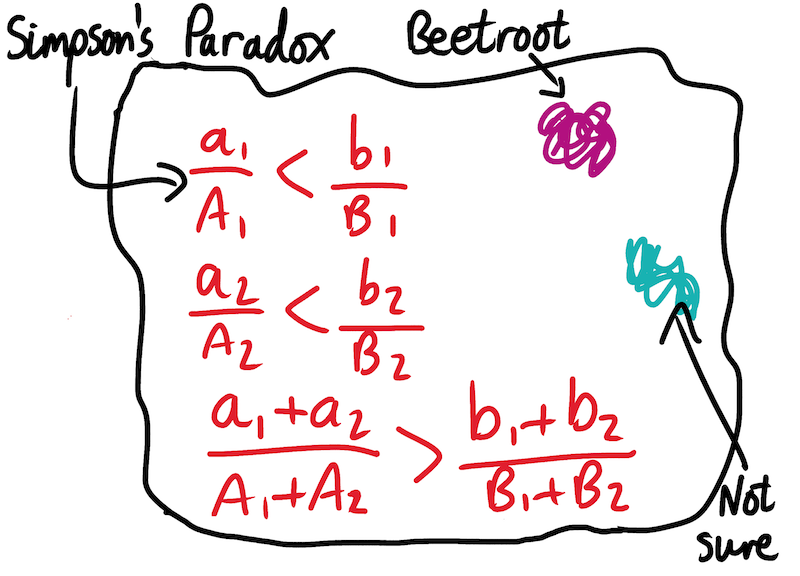 Simpson's Paradox
Beetroot
a₁/A₁ < b₁/B₁
a₂/A₂ < b₂/B₂
a₁+a₂/A₁+A₂ > b₁+b₂/B₁+B₂
Not
sure